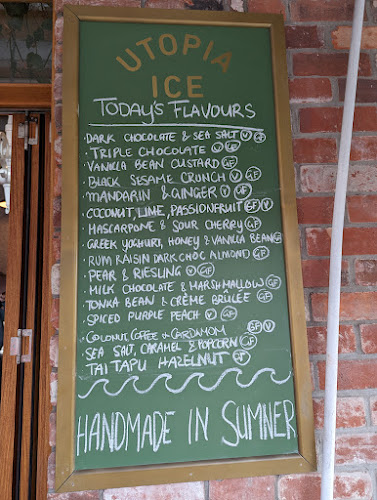 UTOPIA
ICE
TODAY'S FLAVOURS
· DARK CHOCOLATE & SEA SALT V GF
· TRIPLE CHOCOLATE V GF
· VANILLA BEAN CUSTARD GF
· BLACK SESAME CRUNCH V GF
· MANDARIN & GINGER V GF
· COCONUT, LIME, PASSIONFRUIT GF V
· MASCARPONE & SOUR CHERRY GF
· GREEK YOGHURT, HONEY & VANILLA BEAN GF
· RUM RAISIN DARK CHOC ALMOND GF
· PEAR & RIESLING V GF
· MILK CHOCOLATE & MARSHMALLOW GF
· TONKA BEAN & CRÈME BRÛLÉE GF
· SPICED PURPLE PEACH V GF
· COCONUT COFFEE & CARDAMOM GF V
· SEA SALT, CARAMEL & POPCORN GF
· TAI TAPU HAZELNUT GF
HANDMADE IN SUMNER